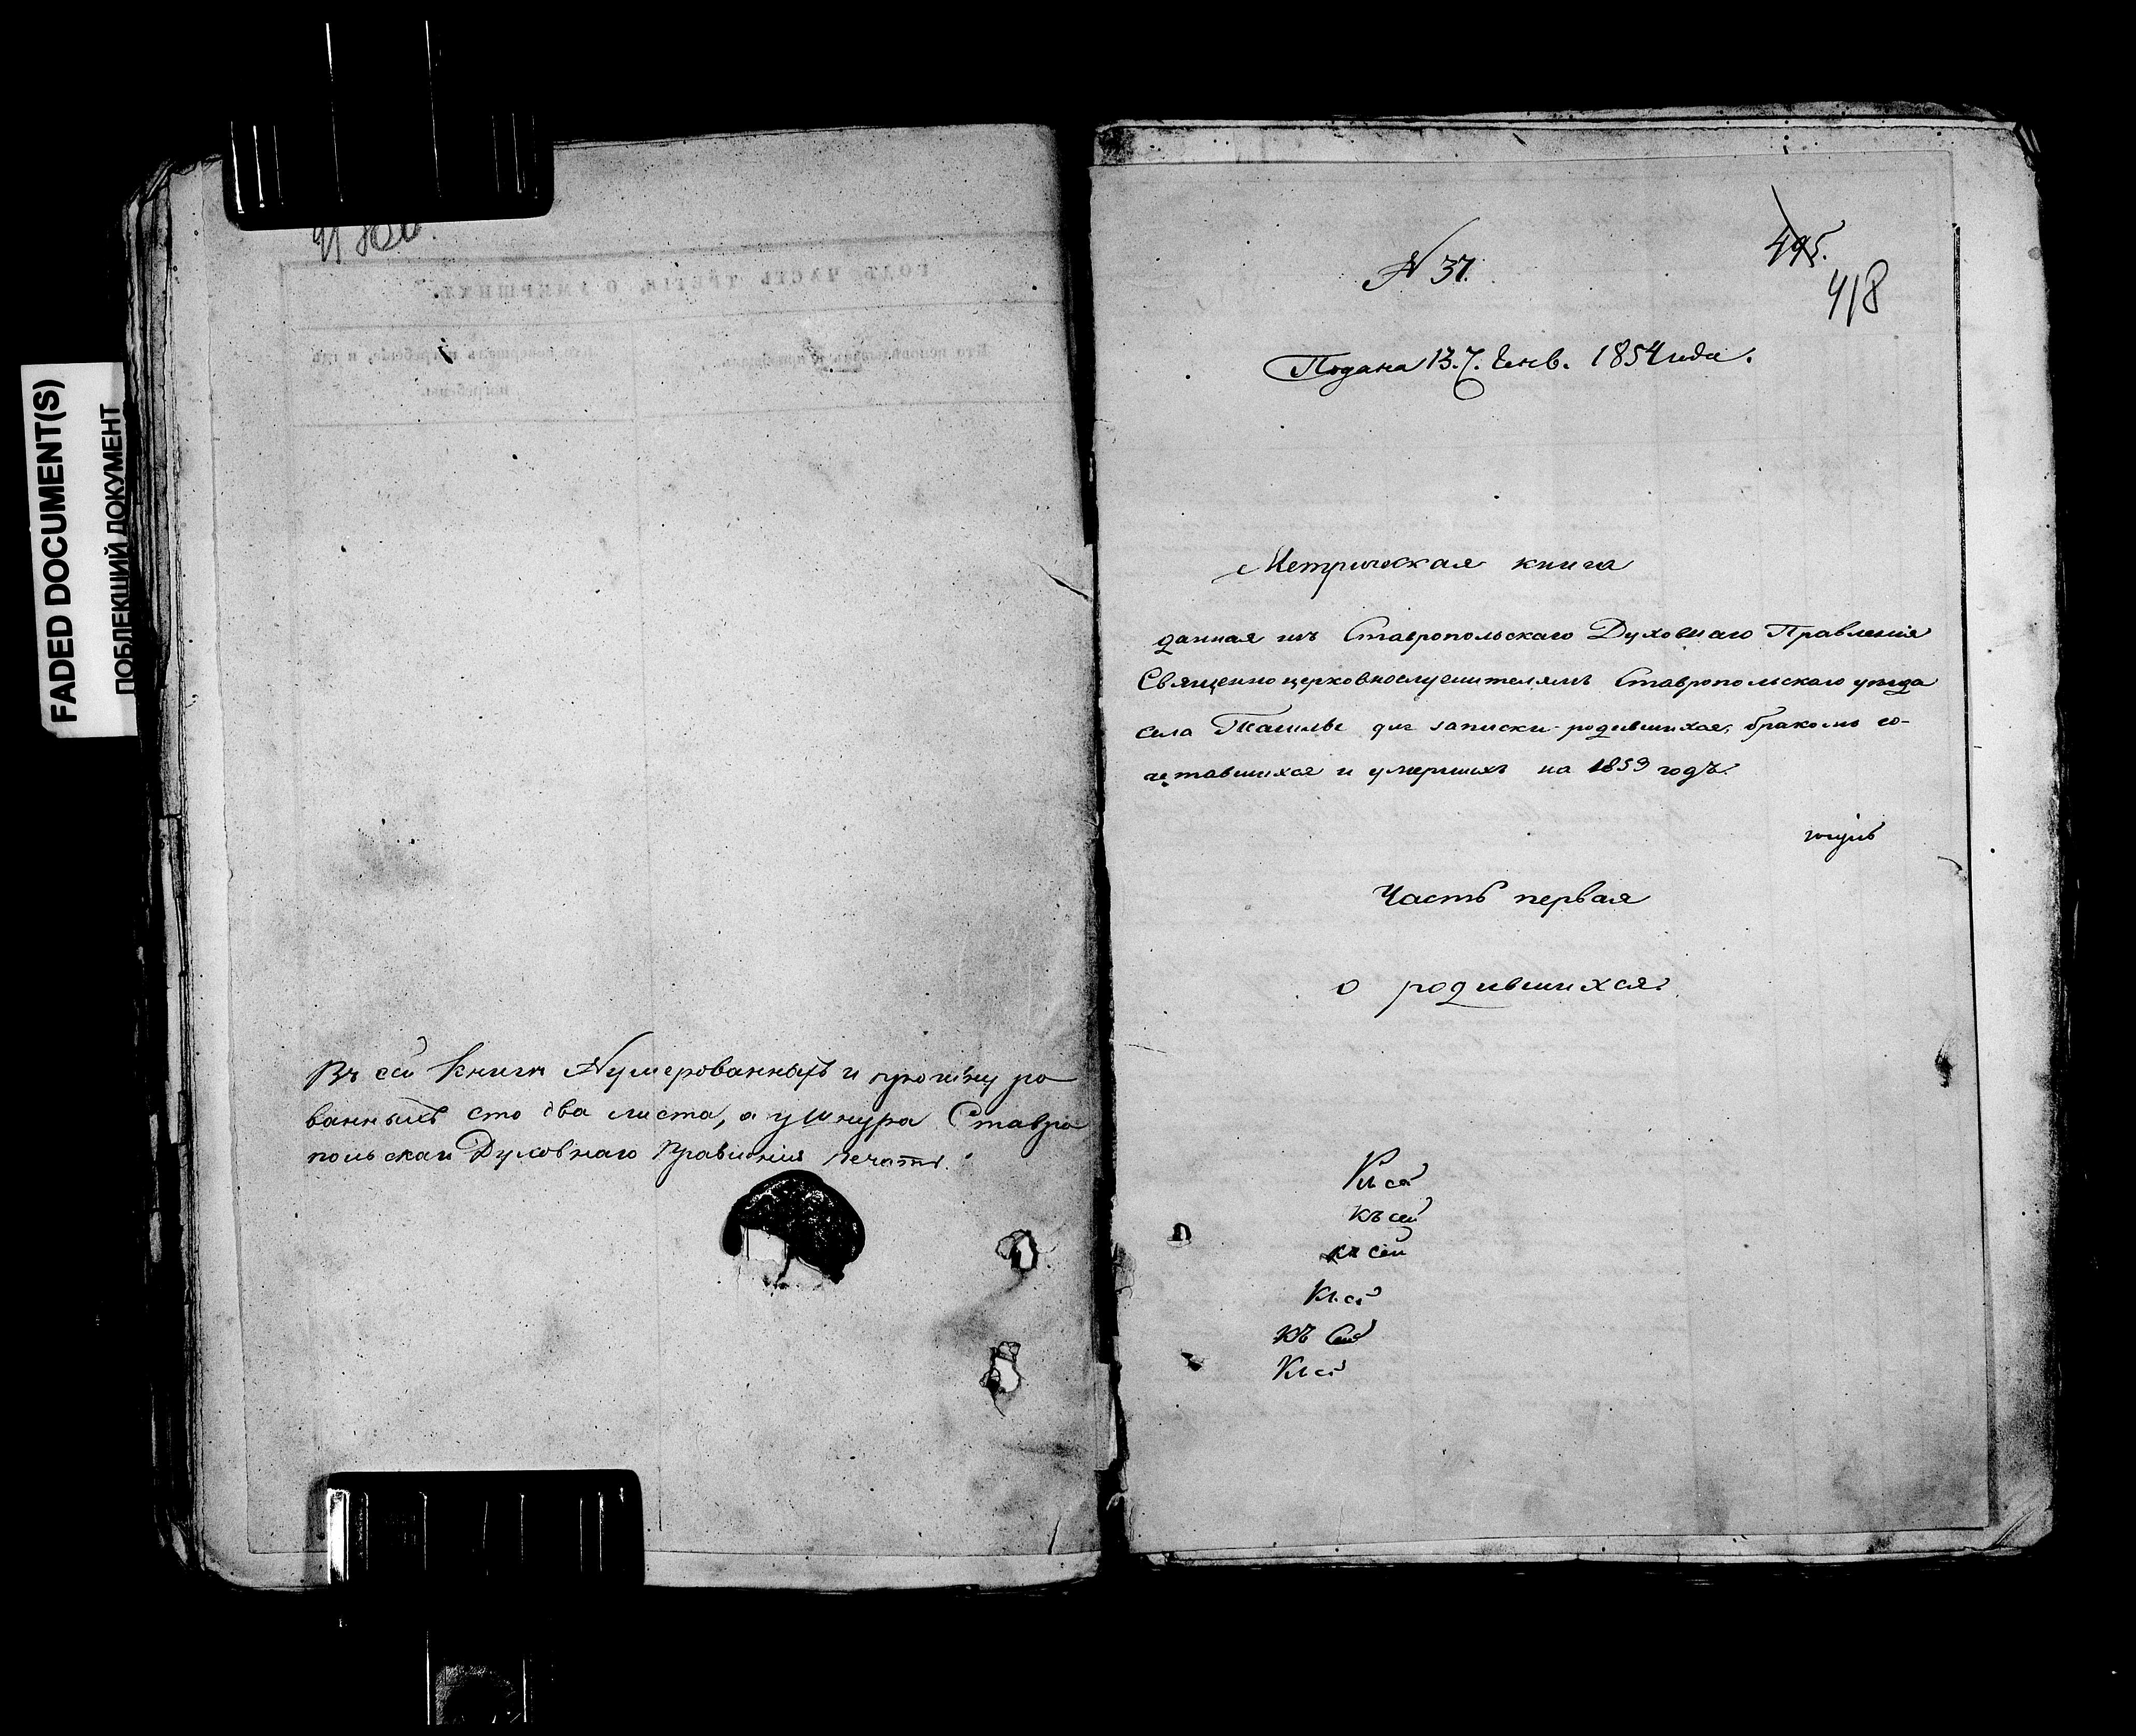 FADED DOCUMENT(S)
ПОБЛЕКШИЙ ДОКУМЕНТ
ГОДЪ ЧАСТЬ ТРЕТІЯ, О УМЕРШИХЪ.
Кто исповѣдывалъ и пріобщалъ.
Кто совершалъ погребеніе, и гдѣ
погребены.
Въ сей Книги Нумерованныхъ и прошнуро
ванныхъ сто два листа, а у Шнура Ставро
польскаго Духовнаго Правленія печать.
N 37.
495.
418
Подана 13. Генв. 1854 года.
Метрическая книга
данная изъ Ставропольскаго Духовнаго Правленія
Священноцерковнослужителямъ Ставропольскаго уѣзда
села для записки родившихся, бракомъ со-
четавшихся и умершихъ на 1853 годъ.
Часть первая
о родившихся.
Къ сей
Къ сей
къ сей
Къ сей
Къ сей
Къ сей